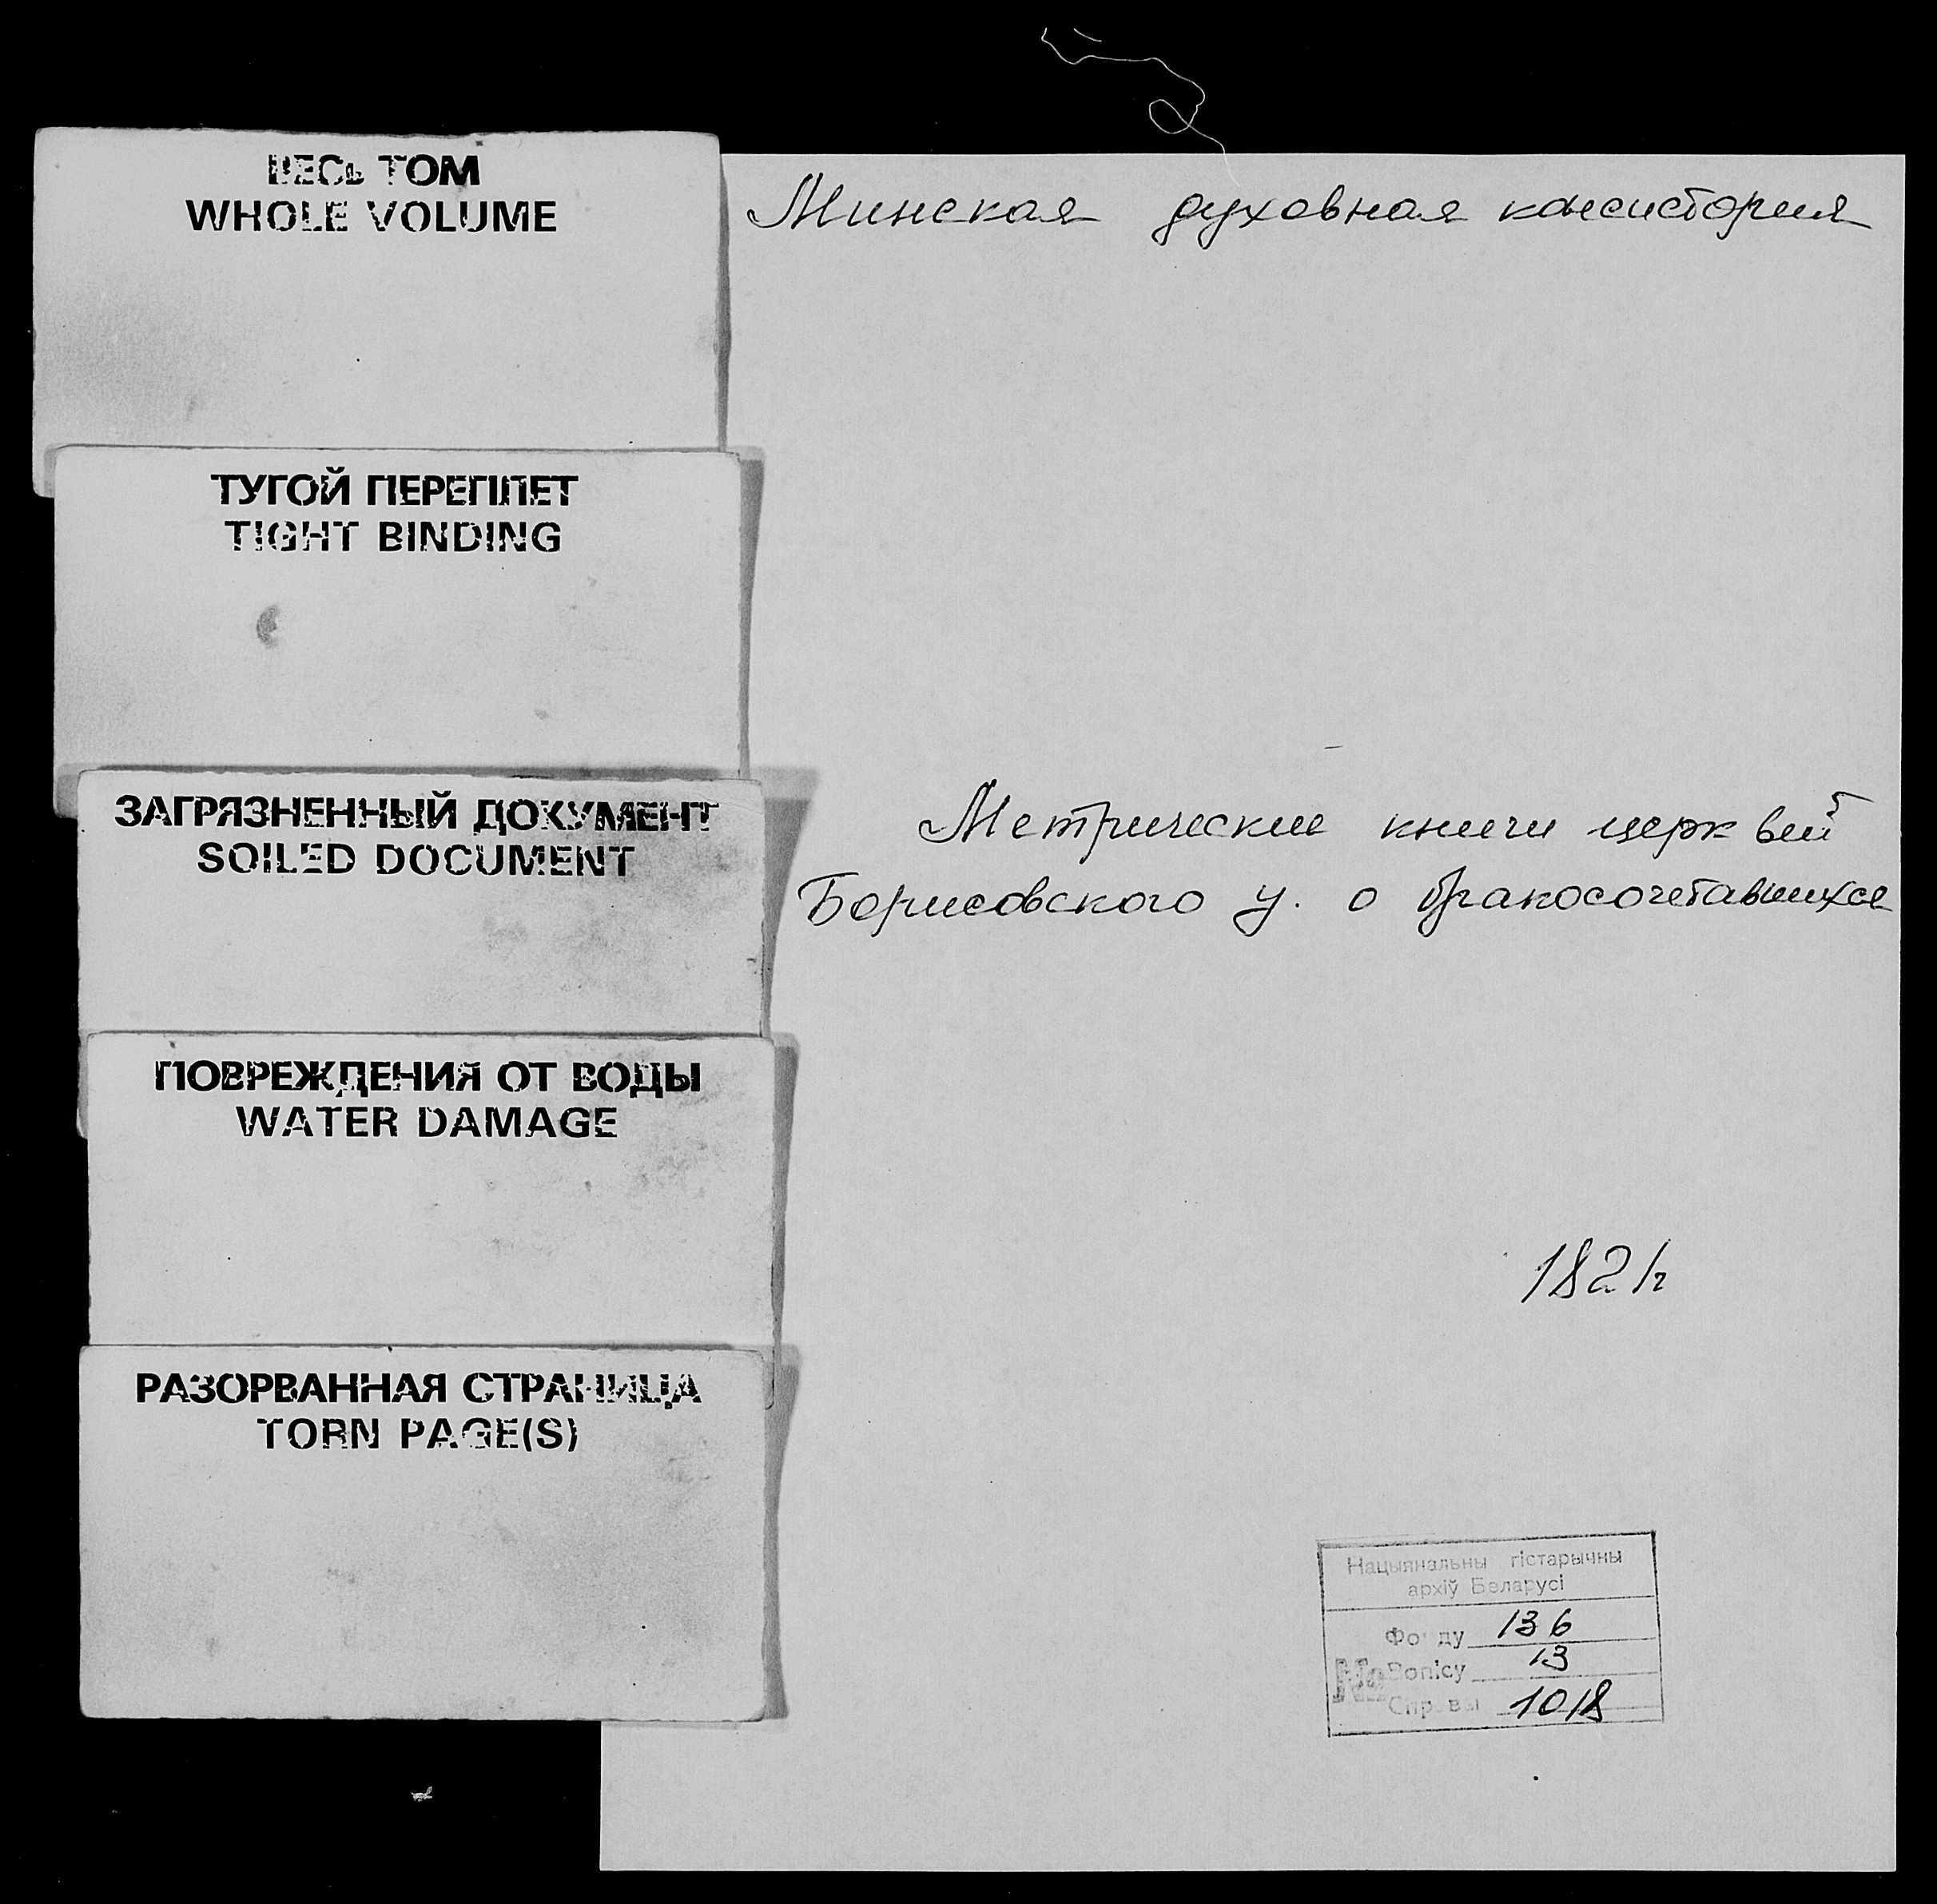 ВЕСЬ ТОМ
WHOLE VOLUME
ТУГОЙ ПЕРЕПЛЕТ
TIGHT BINDING
ЗАГРЯЗНЕННЫЙ ДОКУМЕНТ
SOILED DOCUMENT
ПОВРЕЖДЕНИЯ ОТ ВОДЫ
WATER DAMAGE
РАЗОРВАННАЯ СТРАНИЦА
TORN PAGE(S)
Минская духовная консистория
Метрические книги церквей
Борисовского у. о бракосочетавшихся
1821г
Нацыянальны гістарычны
архіў Беларусі
Фонду 136
№ Вопісу 13
Справы 1018